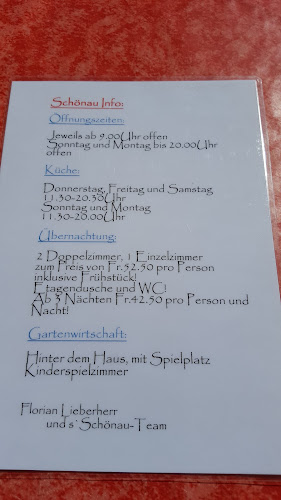 Schönau Info:
Öffnungszeiten:
Jeweils ab 9.00Uhr offen
Sonntag und Montag bis 20.00Uhr
offen
Küche:
Donnerstag, Freitag und Samstag
11.30-20.30Uhr
Sonntag und Montag
11.30-20.00Uhr
Übernachtung:
2 Doppelzimmer, 1 Einzelzimmer
zum Preis von Fr.52.50 pro Person
inklusive Frühstück!
Etagendusche und WC!
Ab 3 Nächten Fr.42.50 pro Person und
Nacht!
Gartenwirtschaft:
Hinter dem Haus, mit Spielplatz
Kinderspielzimmer
Florian Lieberherr
und s`Schönau-Team